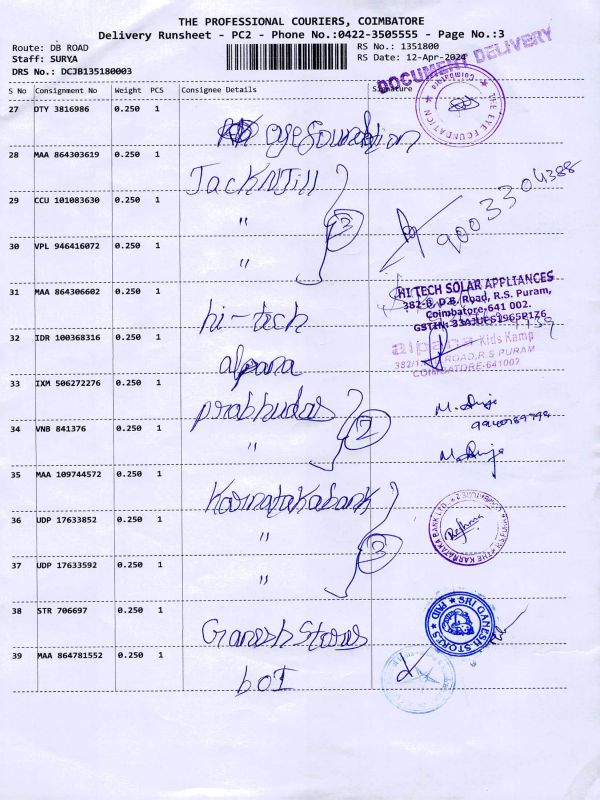 THE PROFESSIONAL COURIERS, COIMBATORE
Delivery Runsheet - PC2 - Phone No.:0422-3505555 - Page No.:3
Route: DB ROAD
RS No.: 1351800
Staff: SURYA
RS Date: 12-Apr-2024
DRS No.: DCJB135180003
DOCUMENT DELIVERY
S No Consignment No Weight PCS Consignee Details Signature
27 DTY 3816986 0.250 1
eye foundation
THE EYE FOUNDATION * Coimbatore *
28 MAA 864303619 0.250 1
JackNJill
29 CCU 101083630 0.250 1
" 3
9003304388
30 VPL 946416072 0.250 1
"
31 MAA 864306602 0.250 1
hi-tech
HI TECH SOLAR APPLIANCES
382-B, D.B. Road, R.S. Puram,
Coimbatore-641 002.
32 IDR 100368316 0.250 1
alpana
alpana Kids Kamp
ROAD,R.S PURAM
COIMBATORE-641002
33 IXM 506272276 0.250 1
prabhudas
34 VNB 841376 0.250 1
" 2
35 MAA 109744572 0.250 1
Karnatakabank
36 UDP 17633852 0.250 1
" 3
THE KARNATAKA BANK LTD.
37 UDP 17633592 0.250 1
"
38 STR 706697 0.250 1
Ganesh Stores
SRI GANESH STORES * PAID *
39 MAA 864781552 0.250 1
boI